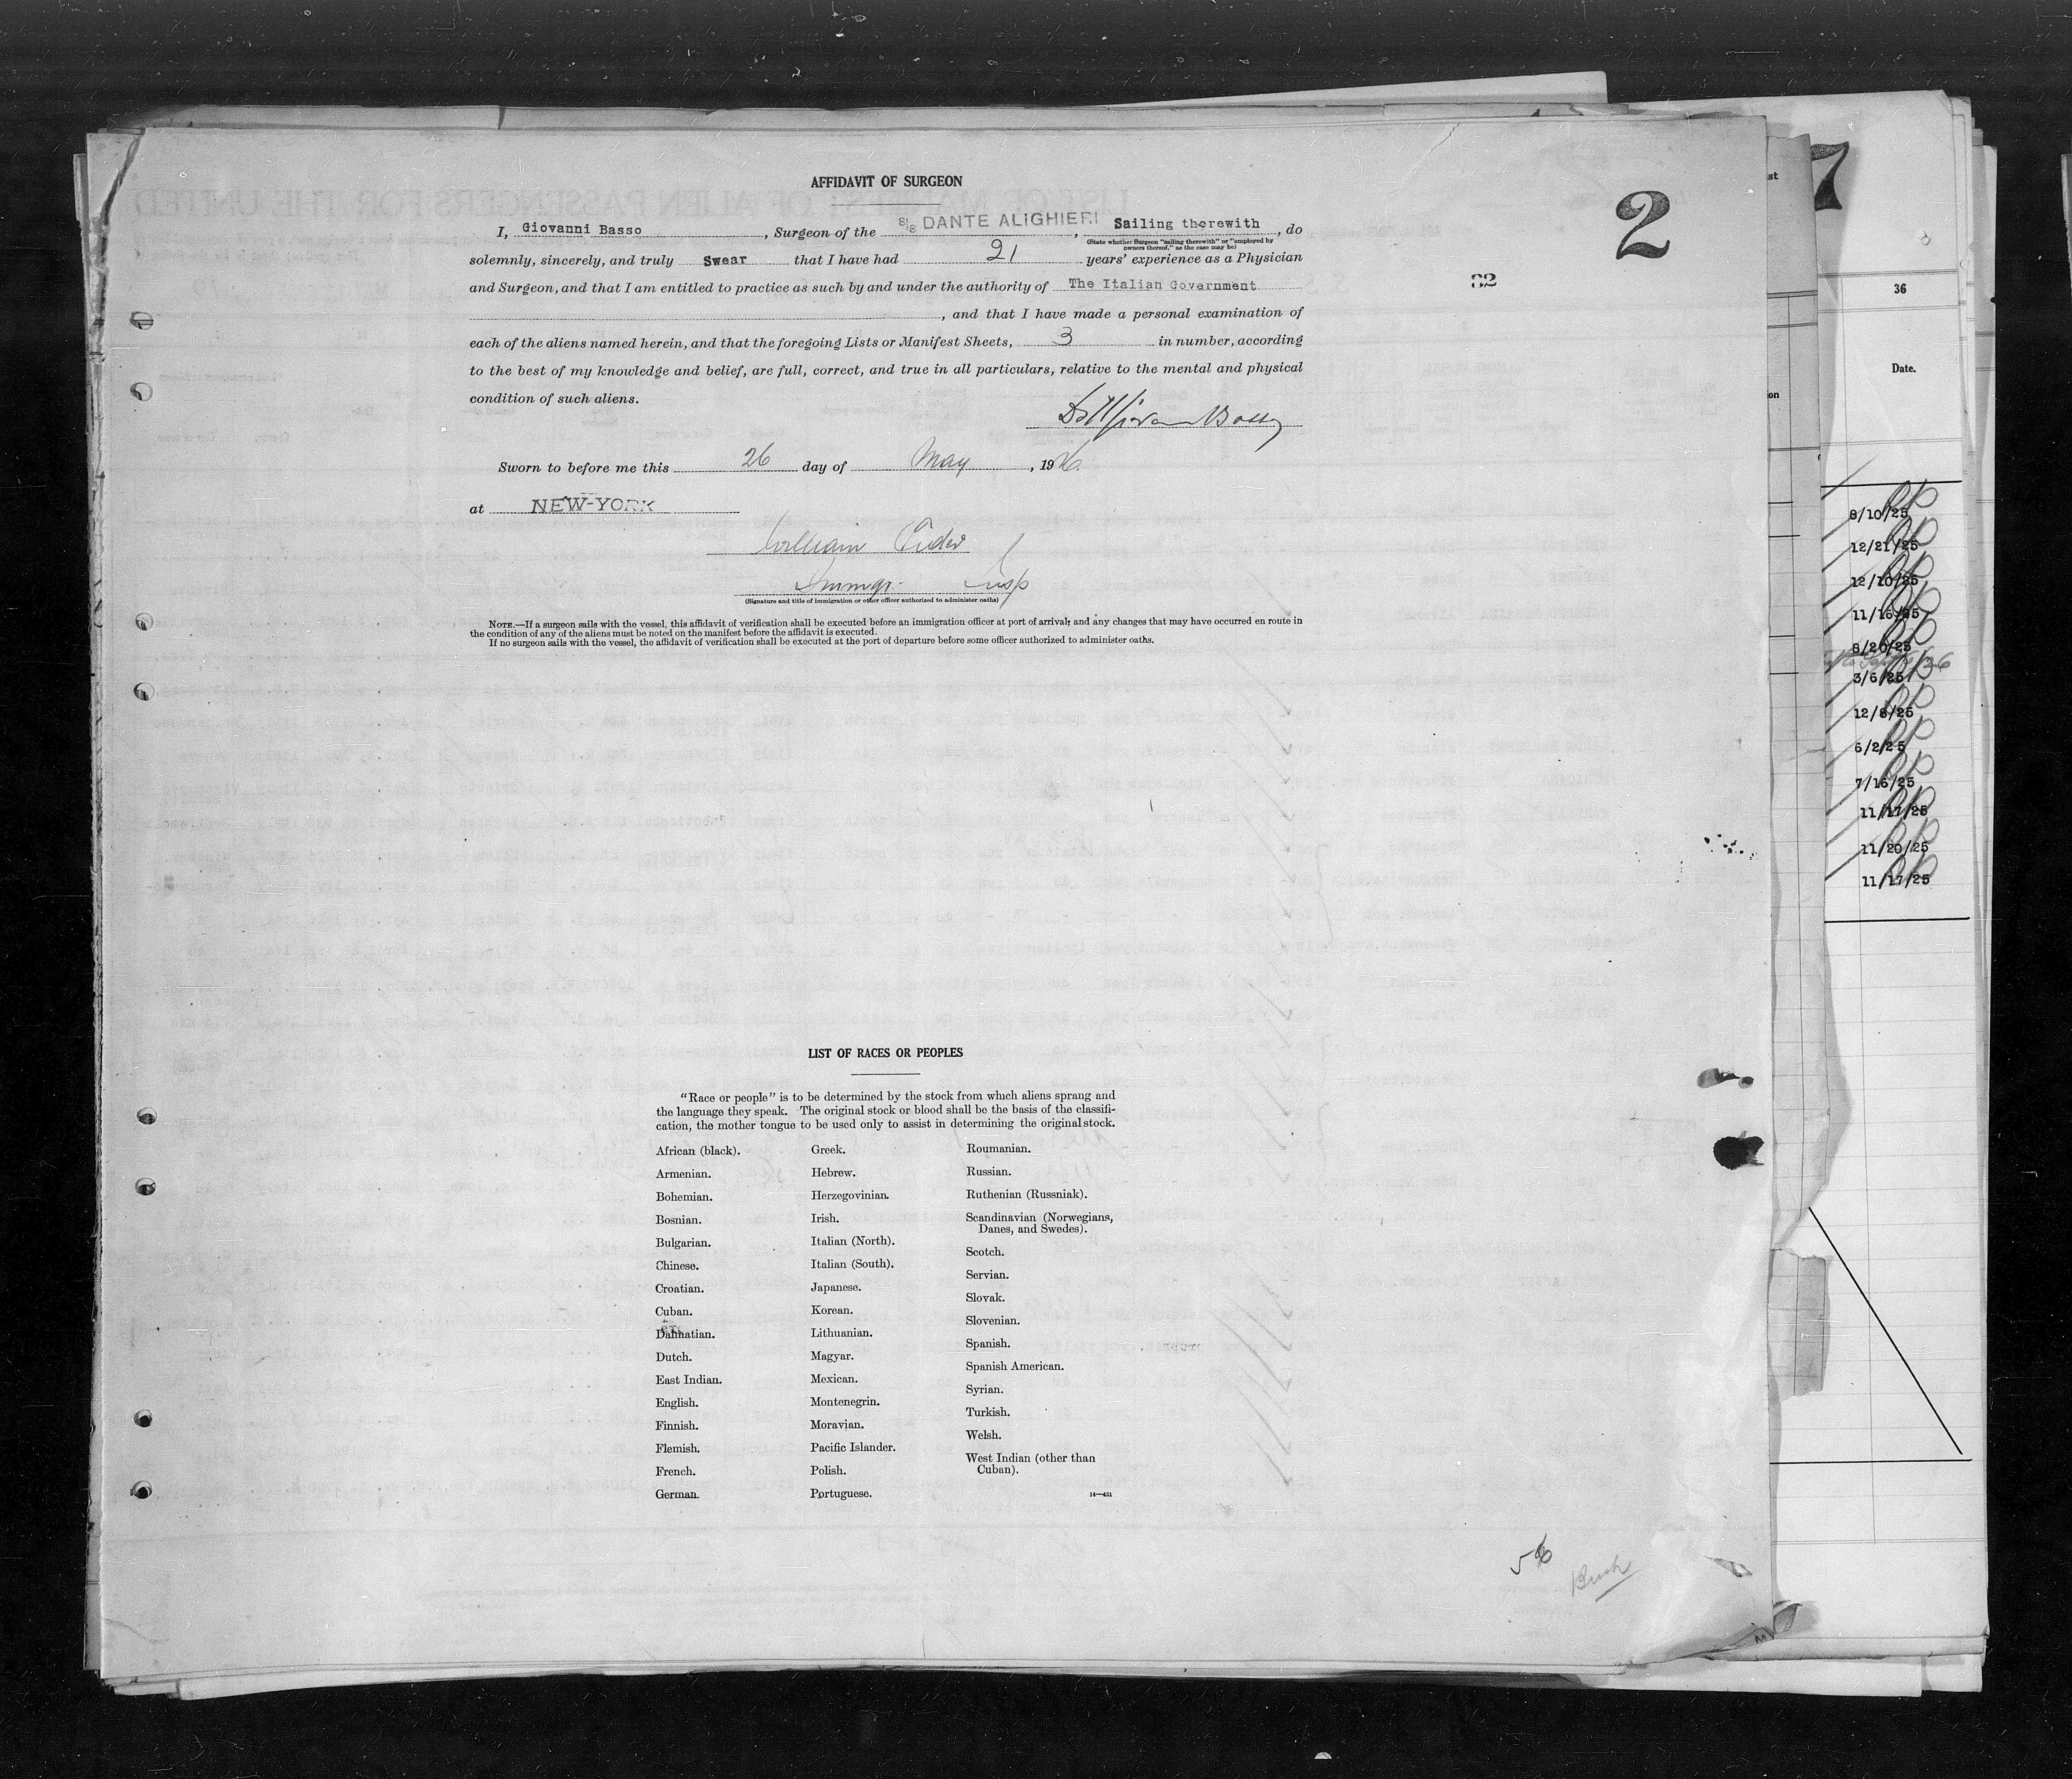 AFFIDAVIT OF SURGEON
I, Giovanni Basso, Surgeon of the S/S DANTE ALIGHIERI, Sailing therewith, do
(State whether Surgeon "sailing therewith" or "employed by
owners thereof," as the case may be)
solemnly, sincerely, and truly Swear that I have had 21 years' experience as a Physician
and Surgeon, and that I am entitled to practice as such by and under the authority of The Italian Government
, and that I have made a personal examination of
each of the aliens named herein, and that the foregoing Lists or Manifest Sheets, 3 in number, according
to the best of my knowledge and belief, are full, correct, and true in all particulars, relative to the mental and physical
condition of such aliens.
Sworn to before me this 26 day of May, 1926.
at NEW-YORK
William
Immgr. Insp
(Signature and title of immigration or other officer authorized to administer oaths)
NOTE.—If a surgeon sails with the vessel, this affidavit of verification shall be executed before an immigration officer at port of arrival; and any changes that may have occurred en route in
the condition of any of the aliens must be noted on the manifest before the affidavit is executed.
If no surgeon sails with the vessel, the affidavit of verification shall be executed at the port of departure before some officer authorized to administer oaths.
2
32
LIST OF RACES OR PEOPLES
"Race or people" is to be determined by the stock from which aliens sprang and
the language they speak. The original stock or blood shall be the basis of the classifi-
cation, the mother tongue to be used only to assist in determining the original stock.
African (black).
Armenian.
Bohemian.
Bosnian.
Bulgarian.
Chinese.
Croatian.
Cuban.
Dalmatian.
Dutch.
East Indian.
English.
Finnish.
Flemish.
French.
German.
Greek.
Hebrew.
Herzegovinian.
Irish.
Italian (North).
Italian (South).
Japanese.
Korean.
Lithuanian.
Magyar.
Mexican.
Montenegrin.
Moravian.
Pacific Islander.
Polish.
Portuguese.
Roumanian.
Russian.
Ruthenian (Russniak).
Scandinavian (Norwegians,
Danes, and Swedes).
Scotch.
Servian.
Slovak.
Slovenian.
Spanish.
Spanish American.
Syrian.
Turkish.
Welsh.
West Indian (other than
Cuban).
14—431
Bush
7
st
on
36
Date.
8/10/25
12/21/25
12/10/25
11/16/25
8/20/25
3/6/25
12/8/25
6/2/25
7/16/25
11/17/25
11/20/25
11/17/25